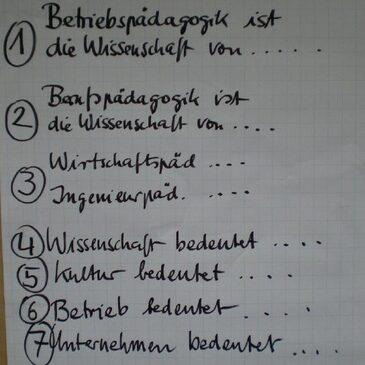 ① Betriebspädagogik ist
die Wissenschaft von .....
② Berufspädagogik ist
die Wissenschaft von ....
③ Wirtschaftspäd ....
Ingenieurpäd. ....
④ Wissenschaft bedeutet ....
⑤ Kultur bedeutet ....
⑥ Betrieb bedeutet ....
⑦ Unternehmen bedeutet ....